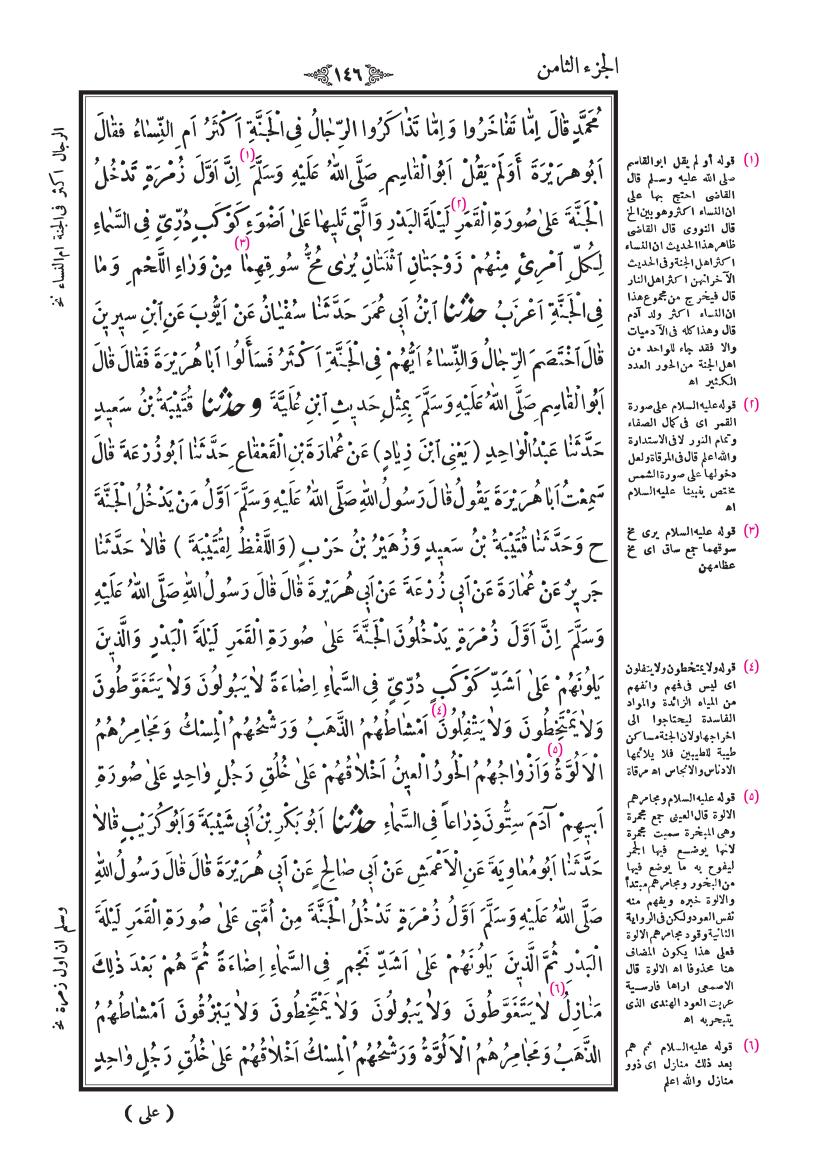 الجزء الثامن
١٤٦
مُحَمَّدٍ قَالَ اِمَّا تَفَاخَرُوا وَاِمَّا تَذَاكَرُوا الرِّجَالُ فِى الْجَنَّةِ اَكْثَرُ اَمِ النِّسَاءُ فَقَالَ
اَبُوهُرَيْرَةَ اَوَلَمْ يَقُلْ اَبُوالْقَاسِمِ صَلَّى اللهُ عَلَيْهِ وَسَلَّمَ (١) اِنَّ اَوَّلَ زُمْرَةٍ تَدْخُلُ
الْجَنَّةَ عَلىٰ صُورَةِ الْقَمَرِ (٢) لَيْلَةَ الْبَدْرِ وَالَّتِى تَلِيهَا عَلىٰ اَضْوَءِ كَوْكَبٍ دُرِّىٍّ فِى السَّمَاءِ
لِكُلِّ اَمْرِئٍ مِنْهُمْ زَوْجَتَانِ اثْنَتَانِ يُرىٰ مُخُّ سُوقِهِمَا (٣) مِنْ وَرَاءِ اللَّحْمِ وَمَا
فِى الْجَنَّةِ اَعْزَبُ حدثنا ابْنُ اَبِى عُمَرَ حَدَّثَنَا سُفْيَانُ عَنْ اَيُّوبَ عَنِ ابْنِ سِيرِينَ
قَالَ اَخْتَصَمَ الرِّجَالُ وَالنِّسَاءُ اَيُّهُمْ فِى الْجَنَّةِ اَكْثَرُ فَسَأَلُوا اَبَاهُرَيْرَةَ فَقَالَ قَالَ
اَبُوالْقَاسِمِ صَلَّى اللهُ عَلَيْهِ وَسَلَّمَ بِمِثْلِ حَدِيثِ ابْنِ عُلَيَّةَ وحدثنا قُتَيْبَةُ بْنُ سَعِيدٍ
حَدَّثَنَا عَبْدُالْوَاحِدِ (يَعْنِى ابْنَ زِيَادٍ) عَنْ عُمَارَةَ بْنِ الْقَعْقَاعِ حَدَّثَنَا اَبُوزُرْعَةَ قَالَ
سَمِعْتُ اَبَاهُرَيْرَةَ يَقُولُ قَالَ رَسُولُ اللهِ صَلَّى اللهُ عَلَيْهِ وَسَلَّمَ اَوَّلُ مَنْ يَدْخُلُ الْجَنَّةَ
ح وَحَدَّثَنَا قُتَيْبَةُ بْنُ سَعِيدٍ وَزُهَيْرُ بْنُ حَرْبٍ (وَاللَّفْظُ لِقُتَيْبَةَ) قَالَا حَدَّثَنَا
جَرِيرٌ عَنْ عُمَارَةَ عَنْ اَبِى زُرْعَةَ عَنْ اَبِى هُرَيْرَةَ قَالَ قَالَ رَسُولُ اللهِ صَلَّى اللهُ عَلَيْهِ
وَسَلَّمَ اِنَّ اَوَّلَ زُمْرَةٍ يَدْخُلُونَ الْجَنَّةَ عَلىٰ صُورَةِ الْقَمَرِ لَيْلَةَ الْبَدْرِ وَالَّذِينَ
يَلُونَهُمْ عَلىٰ اَشَدِّ كَوْكَبٍ دُرِّىٍّ فِى السَّمَاءِ اِضَاءَةً لَا يَبُولُونَ وَلَا يَتَغَوَّطُونَ
وَلَا يَمْتَخِطُونَ وَلَا يَتْفِلُونَ (٤) اَمْشَاطُهُمُ الذَّهَبُ وَرَشْحُهُمُ الْمِسْكُ وَمَجَامِرُهُمُ
الْاَلُوَّةُ (٥) وَاَزْوَاجُهُمُ الْحُورُ الْعِينُ اَخْلَاقُهُمْ عَلىٰ خُلُقِ رَجُلٍ وَاحِدٍ عَلىٰ صُورَةِ
اَبِيهِمْ آدَمَ سِتُّونَ ذِرَاعاً فِى السَّمَاءِ حدثنا اَبُوبَكْرِ بْنُ اَبِى شَيْبَةَ وَاَبُوكُرَيْبٍ قَالَا
حَدَّثَنَا اَبُومُعَاوِيَةَ عَنِ الْاَعْمَشِ عَنْ اَبِى صَالِحٍ عَنْ اَبِى هُرَيْرَةَ قَالَ قَالَ رَسُولُ اللهِ
صَلَّى اللهُ عَلَيْهِ وَسَلَّمَ اَوَّلُ زُمْرَةٍ تَدْخُلُ الْجَنَّةَ مِنْ اُمَّتِى عَلىٰ صُورَةِ الْقَمَرِ لَيْلَةَ
الْبَدْرِ ثُمَّ الَّذِينَ يَلُونَهُمْ عَلىٰ اَشَدِّ نَجْمٍ فِى السَّمَاءِ اِضَاءَةً ثُمَّ هُمْ بَعْدَ ذٰلِكَ
مَنَازِلُ (٦) لَا يَتَغَوَّطُونَ وَلَا يَبُولُونَ وَلَا يَمْتَخِطُونَ وَلَا يَبْزُقُونَ اَمْشَاطُهُمُ
الذَّهَبُ وَمَجَامِرُهُمُ الْاَلُوَّةُ وَرَشْحُهُمُ الْمِسْكُ اَخْلَاقُهُمْ عَلىٰ خُلُقِ رَجُلٍ وَاحِدٍ
( على )
(١) قوله أو لم يقل ابوالقاسم
صلى الله عليه وسلم قال
القاضى احتج بها على
ان النساء اكثر وهو بين الخ
قال النووى قال القاضى
ظاهر هذا الحديث ان النساء
اكثر اهل الجنة وفى الحديث
الآخر انهن اكثر اهل النار
قال فيخرج من مجموع هذا
ان النساء اكثر ولد آدم
قال وهذا كله فى الآدميات
والا فقد جاء للواحد من
اهل الجنة من الحور العدد
الكثير اه
(٢) قوله عليه السلام على صورة
القمر اى فى كمال الصفاء
وتمام النور لا فى الاستدارة
والله اعلم قال فى المرقاة ولعل
دخولها على صورة الشمس
مختص بنبينا عليه السلام
اه
(٣) قوله عليه السلام يرى مخ
سوقهما جمع ساق اى مخ
عظامهن
(٤) قوله ولا يمتخطون ولا يتفلون
اى ليس فى فمهم وانفهم
من المياه الزائدة والمواد
الفاسدة ليحتاجوا الى
اخراجها ولان الجنة مساكن
طيبة للطيبين فلا يلائمها
الادناس والانجاس اه مرقاة
(٥) قوله عليه السلام ومجامرهم
الالوة قال العينى جمع مجمرة
وهى المبخرة سميت مجمرة
لانها يوضع فيها الجمر
ليفوح به ما يوضع فيها
من البخور ومجامرهم مبتدأ
والالوة خبره ويفهم منه
نفس العود ولكن فى الرواية
الثانية وقود مجامرهم الالوة
فعلى هذا يكون المضاف
هنا محذوفا اه الالوة قال
الاصمعى اراها فارسية
عربت العود الهندى الذى
يتبخر به اه
(٦) قوله عليه السلام ثم هم
بعد ذلك منازل اى ذوو
منازل والله اعلم
الرجال اكثر فى الجنة ام النساء نخ
وسلم ان اول زمرة نخ